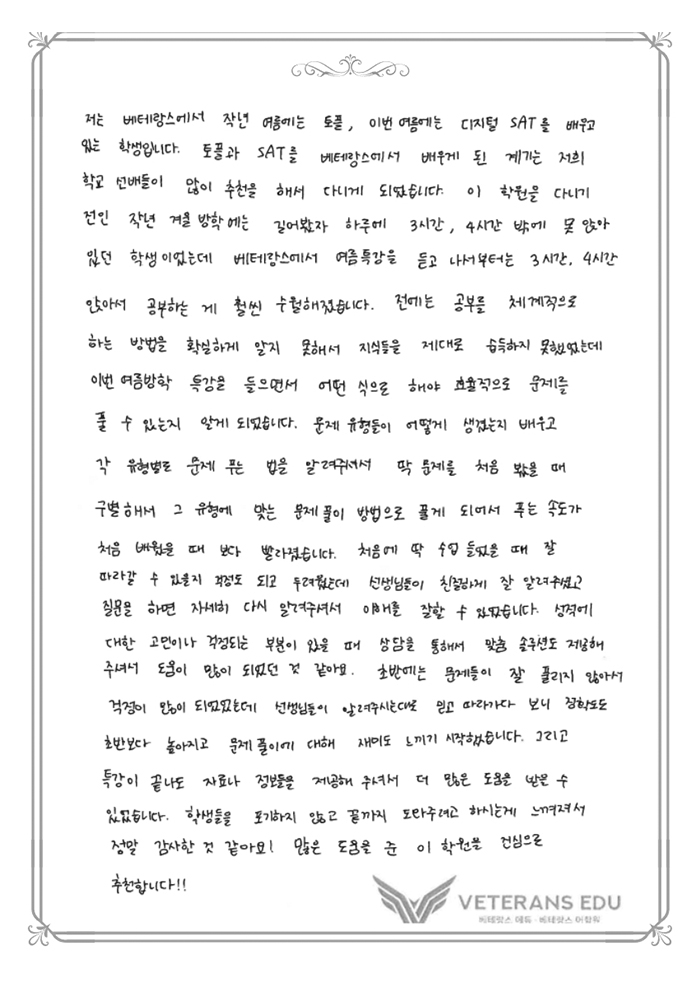 저는 베테랑스에서 작년 여름에는 토플, 이번 여름에는 디지털 SAT를 배우고
있는 학생입니다. 토플과 SAT를 베테랑스에서 배우게 된 계기는 저희
학교 선배들이 많이 추천을 해서 다니게 되었습니다. 이 학원을 다니기
전인 작년 겨울 방학에는 길어봤자 하루에 3시간, 4시간 밖에 못 앉아
있던 학생이었는데 베테랑스에서 여름특강을 듣고 나서부터는 3시간, 4시간
앉아서 공부하는 게 훨씬 수월해졌습니다. 전에는 공부를 체계적으로
하는 방법을 확실하게 알지 못해서 지식들을 제대로 습득하지 못했었는데
이번 여름방학 특강을 들으면서 어떤 식으로 해야 효율적으로 문제를
풀 수 있는지 알게 되었습니다. 문제 유형들이 어떻게 생겼는지 배우고
각 유형별로 문제 푸는 법을 알려주셔서 딱 문제를 처음 봤을 때
구별해서 그 유형에 맞는 문제풀이 방법으로 풀게 되어서 푸는 속도가
처음 배웠을 때 보다 빨라졌습니다. 처음에 딱 수업 들었을 때 잘
따라갈 수 있을지 걱정도 되고 두려웠는데 선생님들이 친절하게 잘 알려주셨고
질문을 하면 자세히 다시 알려주셔서 이해를 잘할 수 있었습니다. 성적에
대한 고민이나 걱정되는 부분이 있을 때 상담을 통해서 맞춤 솔루션도 제공해
주셔서 도움이 많이 되었던 것 같아요. 초반에는 문제들이 잘 풀리지 않아서
걱정이 많이 되었었는데 선생님들이 알려주시는대로 믿고 따라가다 보니 정확도도
초반보다 높아지고 문제풀이에 대해 재미도 느끼기 시작했습니다. 그리고
특강이 끝나도 자료나 정보들을 제공해 주셔서 더 많은 도움을 받은 수
있었습니다. 학생들을 포기하지 않고 끝까지 도와주려고 하시는게 느껴져서
정말 감사한 것 같아요! 많은 도움을 준 이 학원을 진심으로
추천합니다!!
VETERANS EDU
베테랑스 에듀 · 베테랑스 어학원